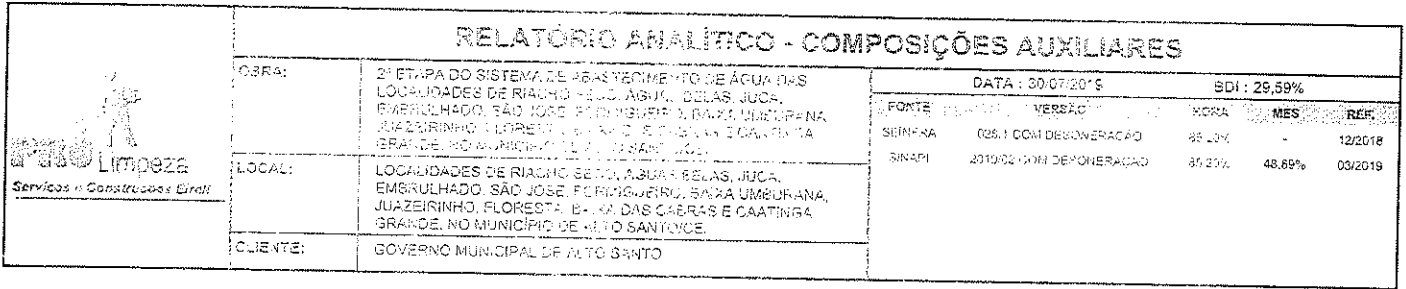 RELATÓRIO ANALÍTICO - COMPOSIÇÕES AUXILIARES
PRO Limpeza
Servicos e Construcoes Eireli
OBRA:
2ª ETAPA DO SISTEMA DE ABASTECIMENTO DE ÁGUA DAS
LOCALIDADES DE RIACHO SECO, AGUAS BELAS, JUCA,
EMBRULHADO, SÃO JOSE, BAIXA UMBURANA,
JUAZEIRINHO, FLORESTA,
GRANDE, NO MUNICÍPIO DE ALTO SANTO/CE.
LOCAL:
LOCALIDADES DE RIACHO SECO, AGUAS BELAS, JUCA,
EMBRULHADO, SÃO JOSE, BAIXA UMBURANA,
JUAZEIRINHO, FLORESTA, BAIXA DAS CABRAS E CAATINGA
GRANDE, NO MUNICÍPIO DE ALTO SANTO/CE.
CLIENTE:
GOVERNO MUNICIPAL DE ALTO SANTO
DATA : 30/07/2019 BDI : 29,59%
FONTE VERSÃO HORA MES REF.
SEINFRA 026.1 COM DESONERAÇÃO - 12/2018
SINAPI 2019/02 COM DESONERAÇÃO 48,69% 03/2019